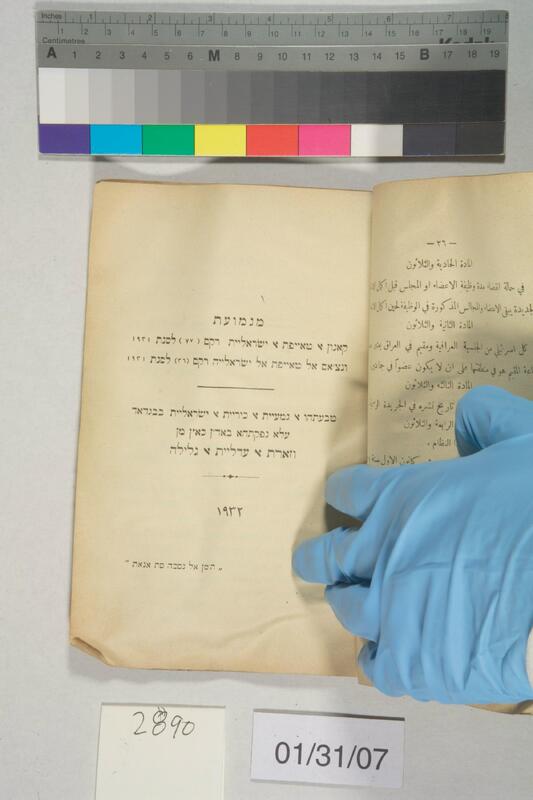 Inches 1 2 3 4 5 6 7 8
Centimetres 1 2 3 4 5 6 7 8 9 10 11 12 13 14 15 16 17 18 19
A 1 2 3 4 5 6 M 8 9 10 11 12 13 14 15 B 17 18 19
١
מגמועת
קאנון א טאייפת א ישראליית רקם (٧٧) לסנת ١٩٣١
ונצאם אל טאייפת אל ישראלייה רקם (٣٦) לסנת ١٩٣١
טבעתהו א גמעיית א כיריית א ישראליית בבגדאד
עלא נפקתהא באדן כאץ מן
וזארת א עדליית א גלילה
١٩٣٢
„ תמן אל נסכה סת אנאת "
— ٢٦ —
المادة الحادية والثلاثون
في حالة انقضاء مدة وظيفة الاعضاء او المجالس قبل
يبقى الاعضاء والمجالس المذكورة في الوظيفة لحين
المادة الثانية والثلاثون
كل اسرائيلي من الجنسية العراقية ومقيم في العراق
المقيم هو في منطقتها متى ان لا يكون عضواً في
المادة الثالثة والثلاثون
تاريخ نشره في الجريدة
الرابعة والثلاثون
النظام .
كانون الاول سنة
2890
01/31/07